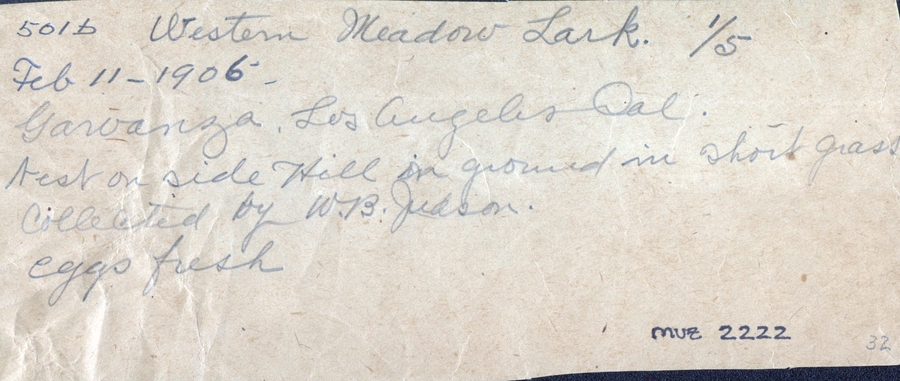 501b Western Meadow Lark. 1/5
Feb 11-1906-
Garvanza, Los Angeles Cal.
Nest on side Hill in ground in short grass
Collected by W.B. Judson.
eggs fresh
MVZ 2222
32